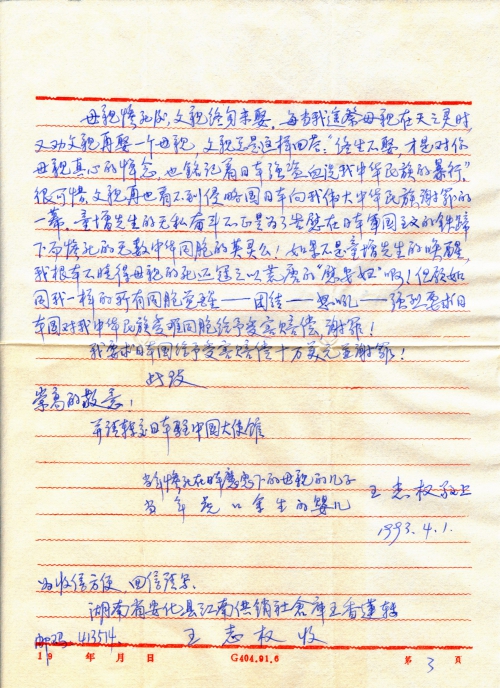 母亲惨死后，父亲终身未娶。每当我追祭母亲在天之灵时
又劝父亲再娶一个母亲，父亲总是这样回答：“终生不娶，才是对你
母亲真心的悼念，也铭记着日本强盗血洗我中华民族的暴行”。
很可惜父亲再也看不到侵略国日本向我伟大中华民族谢罪的
一幕。童增先生的无私奋斗不正是为了告慰在日本军国主义的铁蹄
下而惨死的无数中华同胞的英灵么！如果不是童增先生的唤醒，
我根本不晓得母亲的死还冠之以荒唐的“慰安妇”呀！但愿如
同我一样的所有同胞觉醒——团结——怒吼——强烈要求日
本国对我中华民族受难同胞给予受害赔偿、谢罪！
我要求日本国给予受害赔偿十万美元并谢罪！
此致
崇高的敬意！
并请转交日本驻中国大使馆
当年惨死在日军魔窟下的母亲的儿子
当年虎口余生的婴儿
王志权敬上
1993.4.1.
为收信方便 回信请写：
湖南省安化县江南供销社仓库王香莲转
邮码 413514. 王志权收
19 年 月 日 G404.91.6 第 3 页